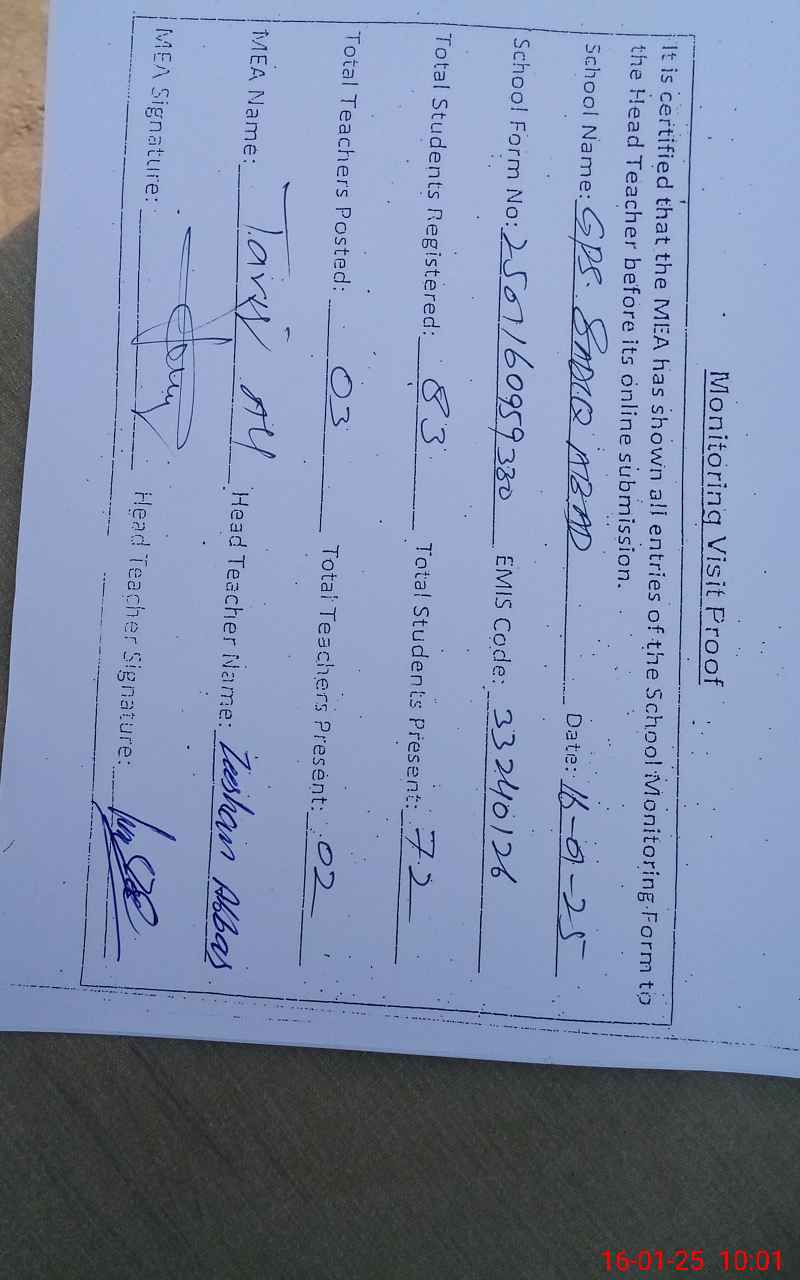 Monitoring Visit Proof
It is certified that the MEA has shown all entries of the School Monitoring Form to
the Head Teacher before its online submission.
School Name: GPS. SADIQ ABAD Date: 16-01-25
School Form No: 250116095938 EMIS Code: 33240126
Total Students Registered: 83 Total Students Present: 72
Total Teachers Posted: 03 Total Teachers Present: 02
MEA Name: Tariq Ali Head Teacher Name: Zeshan Abbas
MEA Signature: Head Teacher Signature:
16-01-25 10:01